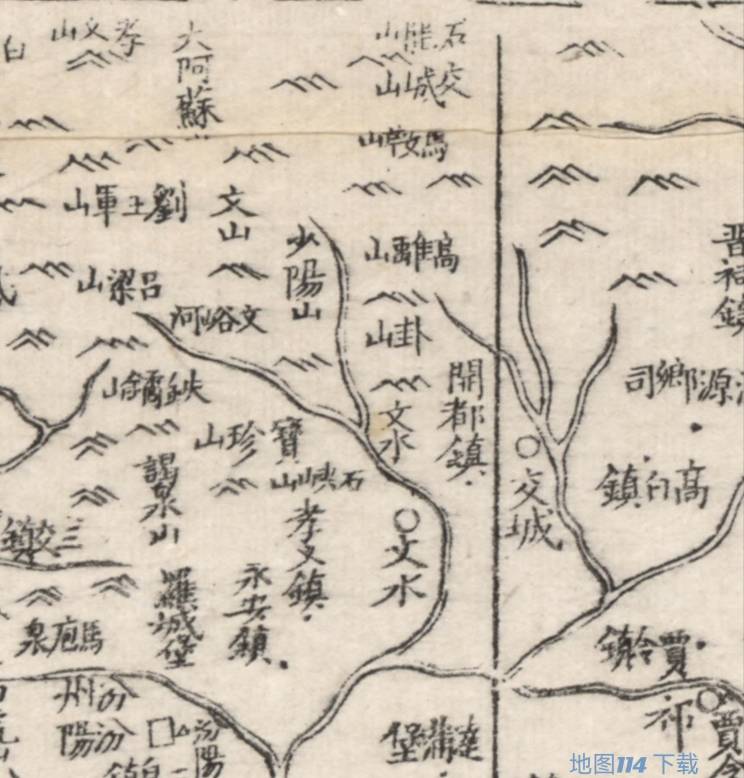 孝文山
大阿蘇
石
交城山
馬鞍山
劉王軍山
文山
少陽山
高離山
晋祠鎮
呂梁山
文峪河
卦山
開都鎮
源鄉司
文水
寶珍山
石峽山
謁泉山
孝义鎮
交城
高白鎮
三交鎮
文水
羅城堡
永安鎮
馬庖泉
賈令鎮
祁
賈令
汾州
汾陽
汾陽
達蒲堡
地图114 下载